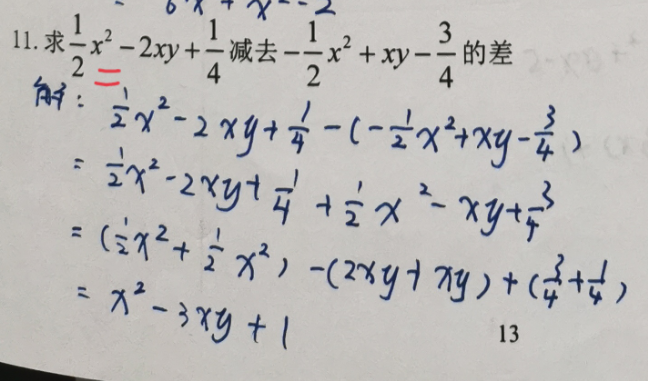 6x + x² - 2
11. 求 1/2 x² - 2xy + 1/4 减去 - 1/2 x² + xy - 3/4 的差
解: 1/2 x² - 2xy + 1/4 - (- 1/2 x² + xy - 3/4)
= 1/2 x² - 2xy + 1/4 + 1/2 x² - xy + 3/4
= (1/2 x² + 1/2 x²) - (2xy + xy) + (3/4 + 1/4)
= x² - 3xy + 1
13